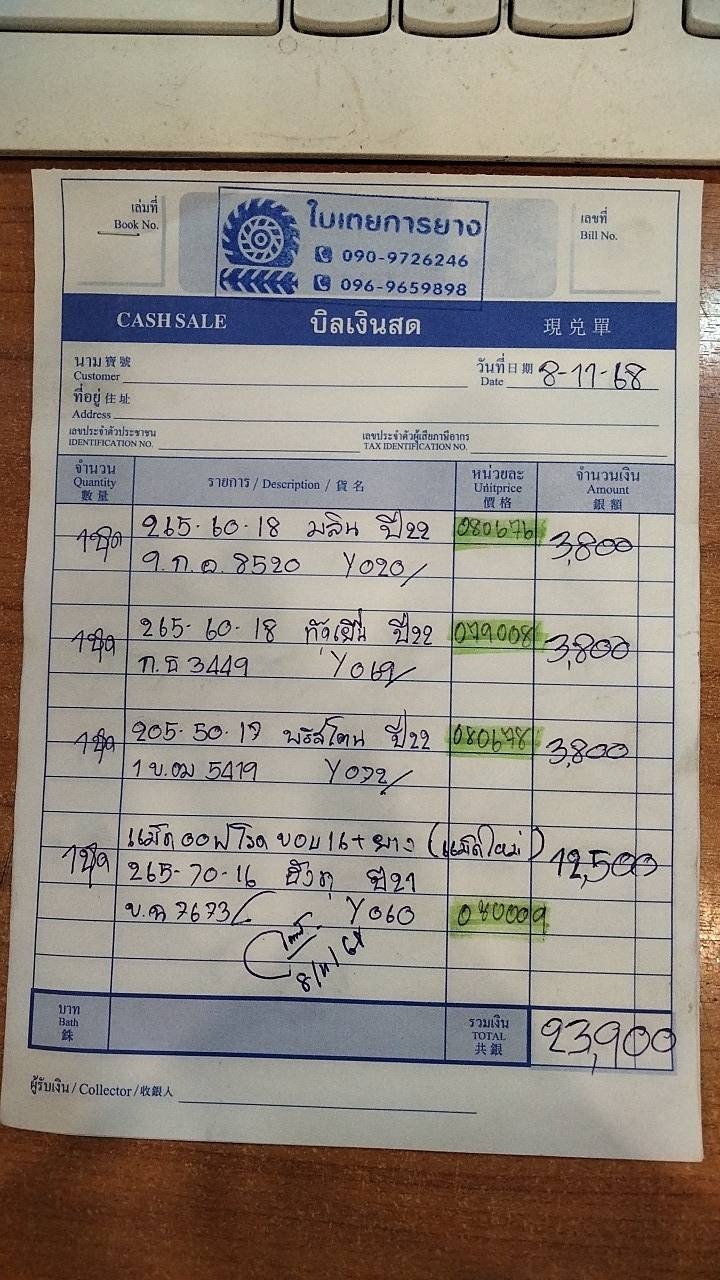 เล่มที่
Book No.
ใบเตยการยาง
090-9726246
096-9659898
เลขที่
Bill No.
CASH SALE บิลเงินสด 現兌單
นาม 寶號
Customer
วันที่ 日期
Date 8-11-68
ที่อยู่ 住址
Address
เลขประจำตัวประชาชน
IDENTIFICATION NO.
เลขประจำตัวผู้เสียภาษีอากร
TAX IDENTIFICATION NO.
จำนวน
Quantity
數量
รายการ / Description / 貨名
หน่วยละ
Unitprice
價格
จำนวนเงิน
Amount
銀額
1ชุด 265-60-18 มลิน ปี22 080676 3,800
8520 Y020/
1ชุด 265-60-18 ปี22 079008 3,800
3449 Y069/
1ชุด 205-50-17 ปี22 080678 3,800
5419 Y072/
1ชุด แม็คออฟโรด ขอบ16+ยาง (แม็คใหม่) 12,500
265-70-16 ปี21
7673 Y060 080009
8/11/68
บาท
Bath
銖
รวมเงิน
TOTAL
共銀
23,900
ผู้รับเงิน / Collector / 收銀人